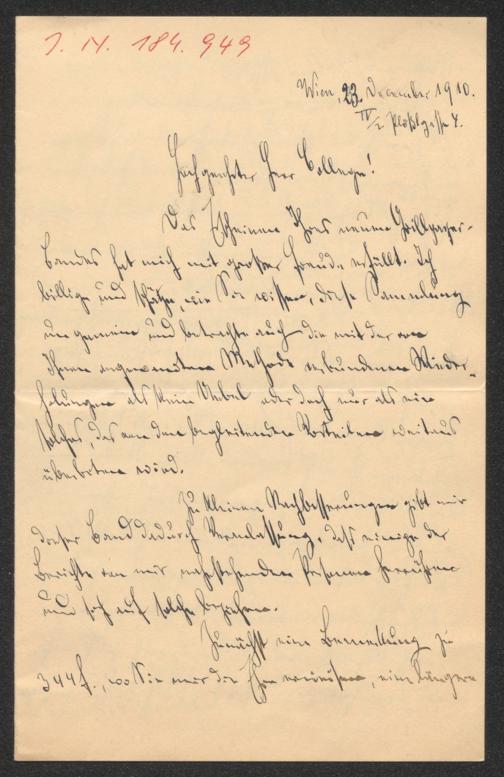 J. N. 184.949
Wien, 23. December 1910.
IV/2 Plößlgasse 4.
Hochgeehrter Herr College!
Das Erscheinen Ihres neuen Grillparzer-
bandes hat mich mit großer Freude erfüllt. Ich
billige und schätze, wie Sie wissen, diese Sammlung
ungemein und betrachte auch die mit der von
Ihnen angewendeten Methode verbundenen Wieder-
holungen als kein Uebel oder doch nur als ein
solches, das von den begleitenden Vorteilen weitaus
überboten wird.
Zu kleinen Nachbesserungen gibt mir
dieser Band dadurch Veranlassung, daß einige der
Berichte von mir nahestehenden Personen herrühren
und sich auf solche beziehen.
Zunächst eine Bemerkung zu
344 f., wo Sie mir die Ehre erweisen, eine längere